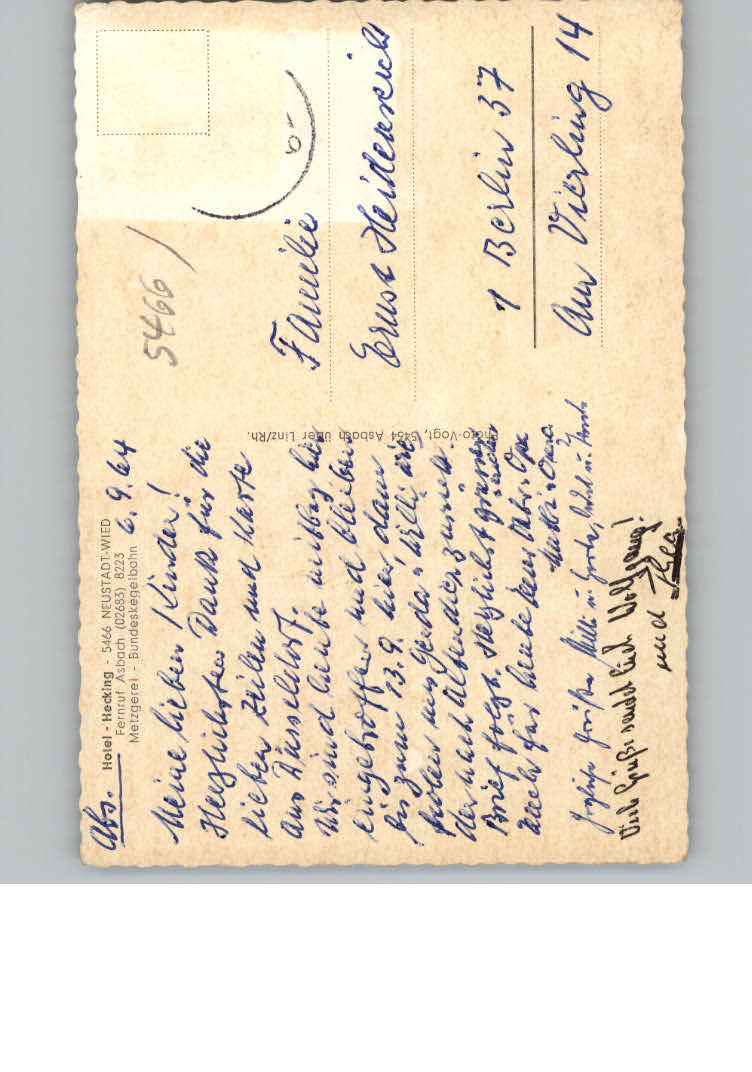 Abs.
Hotel - Hecking - 5466 NEUSTADT-WIED
Fernruf Asbach (02683) 8223
Metzgerei - Bundeskegelbahn
6.9.64
Meine lieben Kinder!
Herzlichsten Dank für die
lieben Zeilen und Karte
aus Düsseldorf.
Wir sind heute mittag hier
eingetroffen und bleiben
bis zum 13.9. hier, dann
holen uns Gerda u. Willi wie
nach Altendiez zurück.
Brief folgt. Herzlichst grüssen
auch für heute Eure Abs. Opa
Mutti u. Oma.
Herzliche Grüße Willi u. Gerda,
Viele Grüße sendet Euch Wolfgang!
und
Photo-Vogt, 5464 Asbach über Linz/Rh.
5466
Familie
Ernst Heidenreich
1 Berlin 37
Am Vierling 14